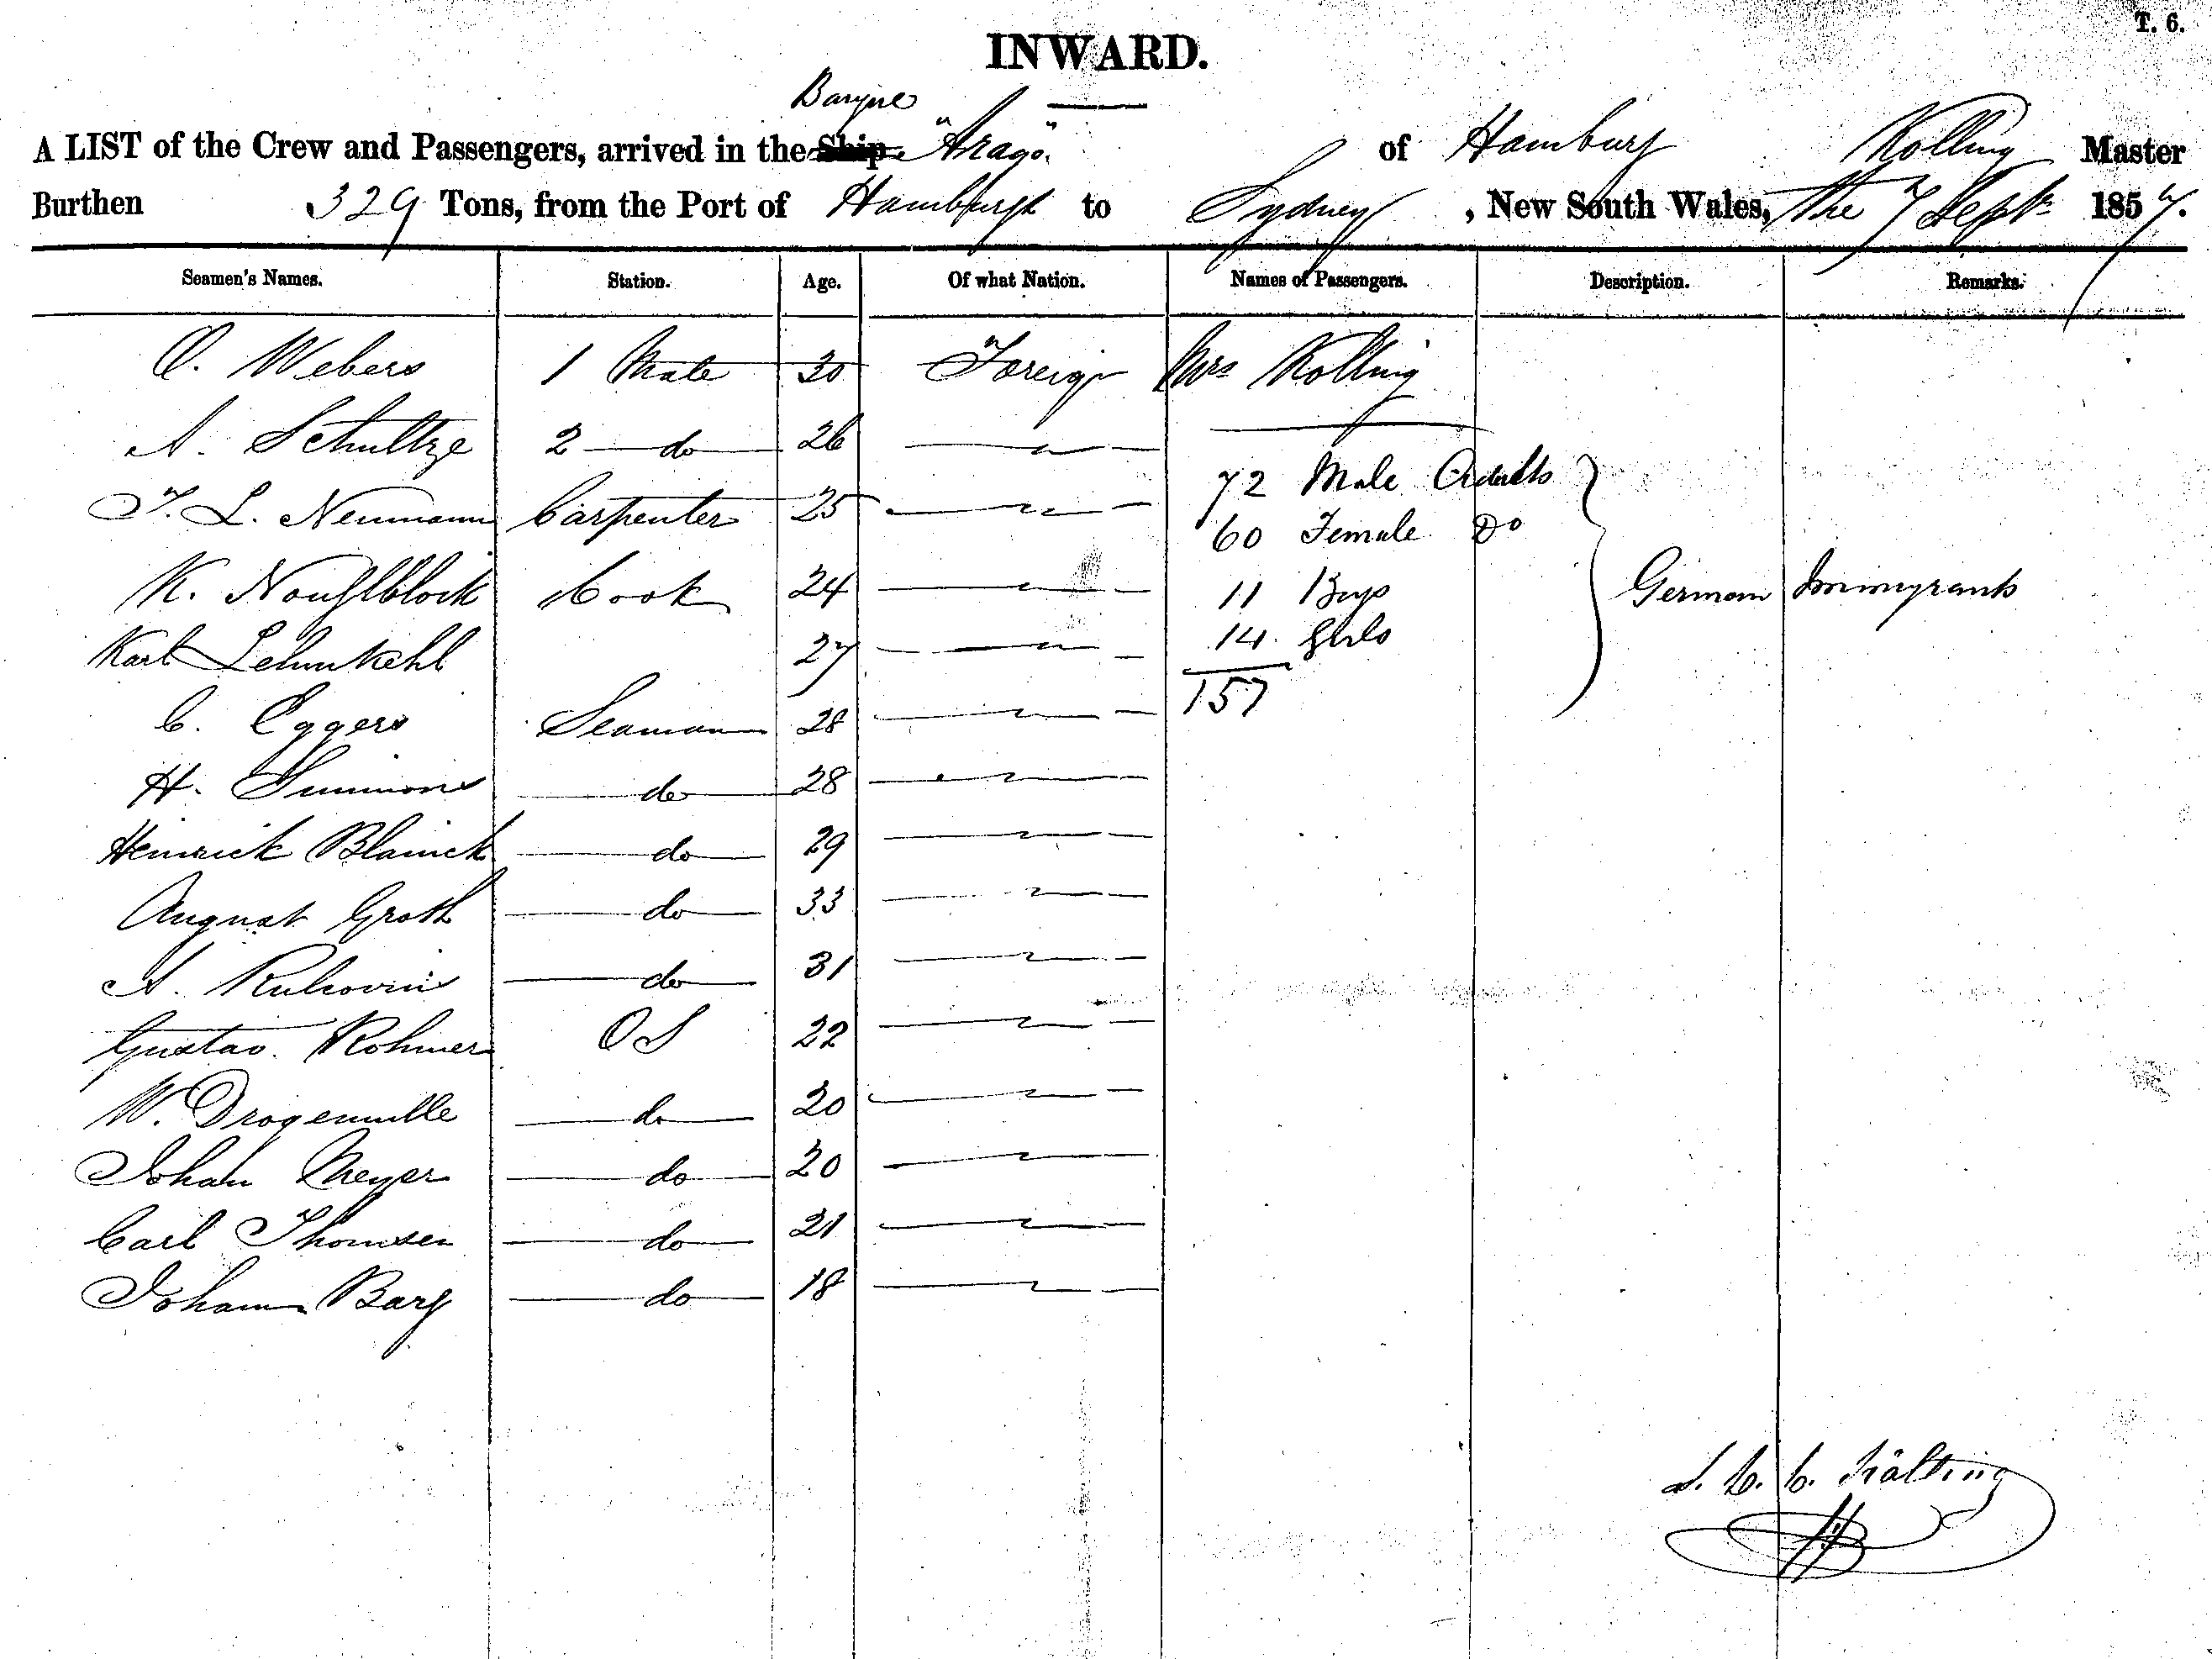 T. 6.
INWARD.
Barque
A LIST of the Crew and Passengers, arrived in the Ship "Arago" of Hamburg Kolling Master
Burthen 329 Tons, from the Port of Hamburgh to Sydney, New South Wales, the 7 Sept 1857.
Seamen's Names. Station. Age. Of what Nation. Names of Passengers. Description. Remarks.
O. Webers 1 Mate 30 Foreign Mrs Kolling
A. Schultze 2 do 26
72 Male Adults
L. Neumann Carpenter 25
60 Female Do
K. Cook 24 11 Boys German Immigrants
14 Girls
Karl 27
157
C. Eggers Seaman 28
H. Simmons do 28
Heinrick do 29
August Groth do 33
A. do 31
Gustav Rohmer OS 22
W. do 20
Johan Meyer do 20
Carl Thomsen do 21
Johann Barg do 18
Kölling